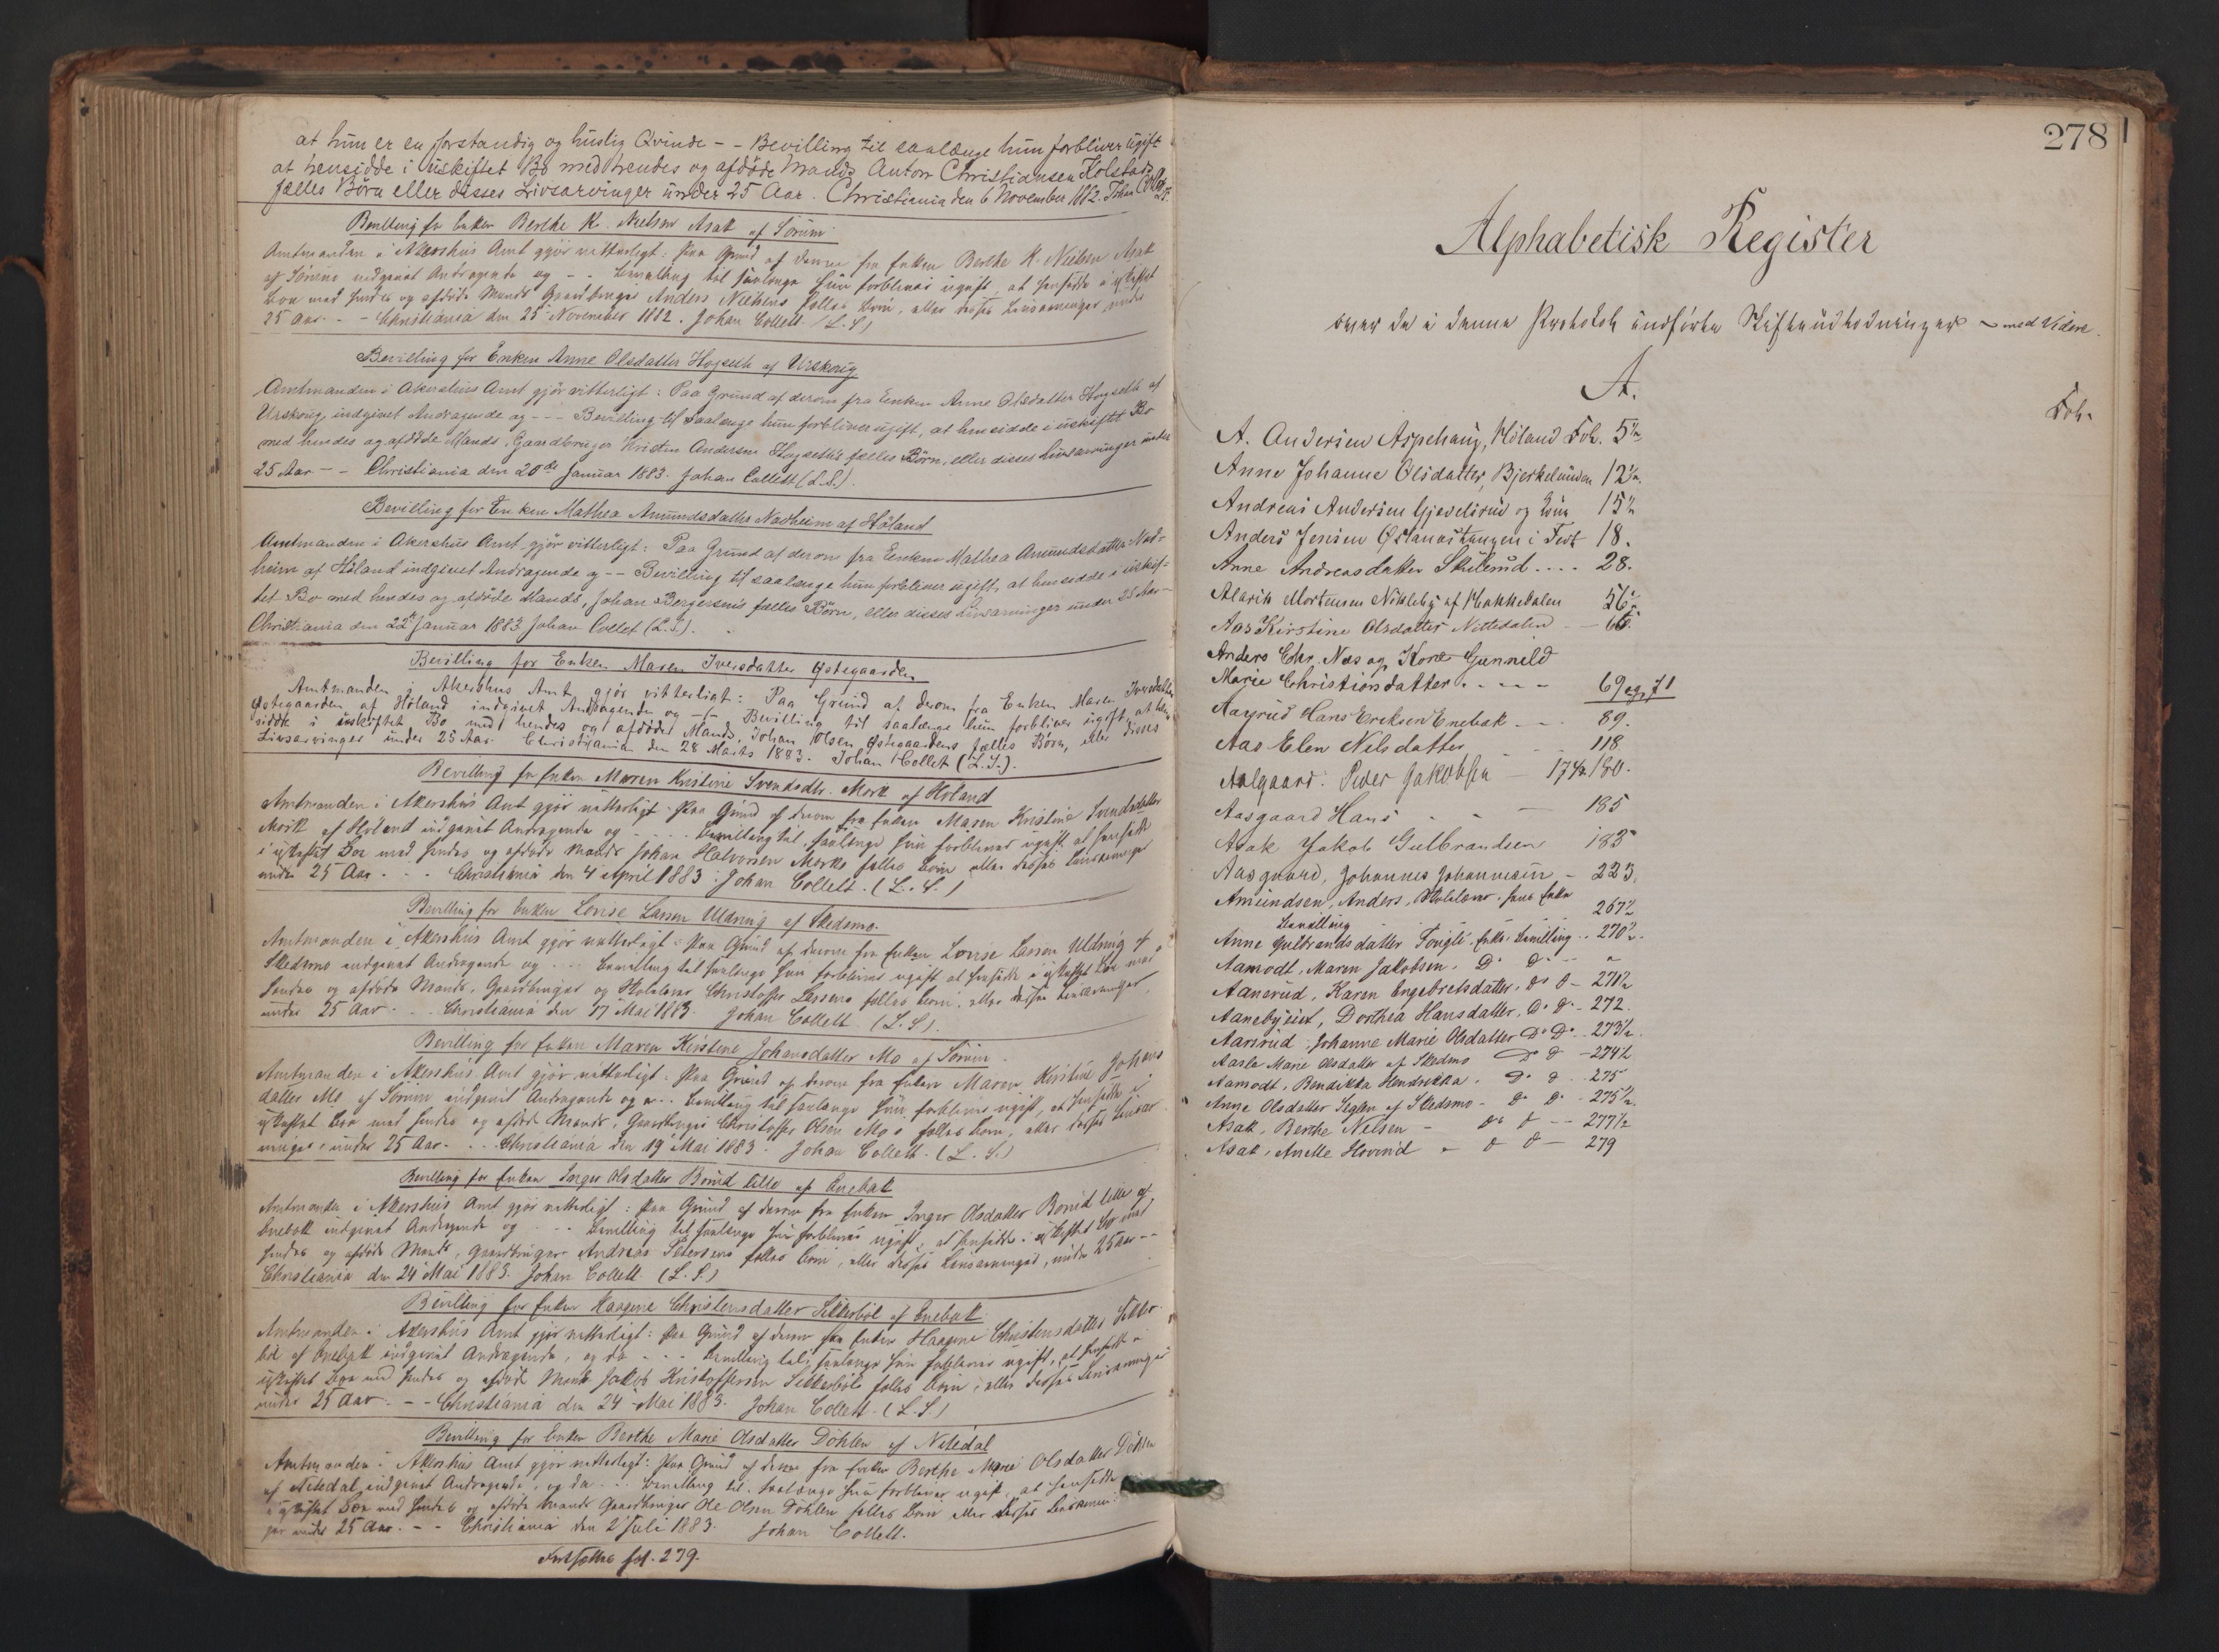 at hun er en forstandig og huslig Qvinde - - Bevilling til saalænge hun forbliver ugift
at hensidde i uskiftet Bo med hendes og afdöde Mands Anton Christiansen Kolstads
fælles Börn eller disses Livsarvinger under 25 Aar. Christiania den 6 November 1882. Johan Collett
Bevilling for Enken Berthe K. Nielsen Asak af Sörum
Amtmanden i Akershus Amt gjör vitterligt: Paa Grund af derom fra Enken Berthe K. Nielsen Asak
af Sörum indgivet Andragende og - - Bevilling til saalænge hun forbliver ugift, at hensidde i uskiftet
Boe med hendes og afdöde Mands Gaardbruger Anders Nielsens fælles Börn, eller disses Livsarvinger under
25 Aar. - - Christiania den 25 November 1882. Johan Collett (L.S.)
Bevilling for Enken Anne Olsdatter Hogseth af Urskoug
Amtmanden i Akershus Amt gjör vitterligt: Paa Grund af derom fra Enken Anne Olsdatter Hogseth af
Urskoug indgivet Andragende og - - - Bevilling til saalænge hun forbliver ugift, at hensidde i uskiftet Bo
med hendes og afdöde Mands, Gaardbruger Kristen Andersen Hogseths fælles Börn, eller disses Livsarvinger under
25 Aar - - Christiania den 20de Januar 1883. Johan Collett (L.S.).
Bevilling for Enken Mathea Amundsdatter Nadheim af Höland
Amtmanden i Akershus Amt gjör vitterligt: Paa Grund af derom fra Enken Mathea Amundsdatter Nad-
heim af Höland indgivet Andragende og - - Bevilling til saalænge hun forbliver ugift, at hensidde i uskif-
tet Bo med hendes og afdöde Mands, Johan Bergersens fælles Börn, eller disses Livsarvinger under 25 Aar -
Christiania den 22de Januar 1883 Johan Collet (L.S.).
Bevilling for Enken Maren Iversdatter Östegaarden
Amtmanden i Akershus Amt gjör vitterligt: Paa Grund af derom fra Enken Maren Iversdatter
Östegaarden af Höland indgivet Andragende og - - Bevilling til saalænge hun forbliver ugift, at hen-
sidde i uskiftet Bo med hendes og afdöde Mands, Johan Olsen Östegaardens fælles Börn, eller disses
Livsarvinger under 25 Aar. Christiania den 28 Marts 1883. Johan Collet (L.S.).
Bevilling for Enken Maren Kristine Svendsdtr. Mork af Höland
Amtmanden i Akershus Amt gjör vitterligt: Paa Grund af derom fra Enken Maren Kristine Svendsdatter
Mork af Höland indgivet Andragende og - - - Bevilling til, saalænge hun forbliver ugift, at hensidde
i uskiftet Boe med hendes og afdöde Mands Johan Halvorsen Morks fælles Börn eller disses Livsarvinger
under 25 Aar. - - Christiania den 4 April 1883. Johan Collett. (L.S.)
Bevilling for Enken Lovise Larsen Uldring af Skedsmo.
Amtmanden i Akershus Amt gjör vitterligt: Paa Grund af derom fra Enken Lovise Larsen Uldring af
Skedsmo indgivet Andragende og - - - Bevilling til saalænge hun forbliver ugift at hensidde i uskiftet Boe med
hendes og afdöde Mands, Gaardbruger og Christoffer Larsens fælles Börn, eller disses Livsarvinger,
under 25 Aar. - - Christiania den 17 Mai 1883. Johan Collett. (L.S).
Bevilling for Enken Maren Kirstine Johansdatter Mo af Sörum.
Amtmanden i Akershus Amt gjör vitterligt: Paa Grund af derom fra Enken Maren Kirstine Johans
datter Mo af Sörum indgivet Andragende og - - Bevilling til saalænge hun forbliver ugift, at hensidde i
uskiftet Boe med hendes og afdöde Mands, Gaardbruger Christoffer Olsen Mos fælles Börn, eller disses Livsar
vinger, under 25 Aar. - - Christiania den 19 Mai 1883. Johan Collett. (L.S.)
Bevilling for Enken Inger Olsdatter lille af Enebak
Amtmanden i Akershus Amt gjör vitterligt: Paa Grund af derom fra Enken Inger Olsdatter lille af
Enebak indgivet Andragende og - - - Bevilling til saalænge hun forbliver ugift, at hensidde i uskiftet Bo med
hendes og afdöde Mands, Gaardbruger Andreas Petersens fælles Börn, eller disses Livsarvinger, under 25 Aar - -
Christiania den 24 Mai 1883. Johan Collett. (L.S.)
Bevilling for Enken Haagine Christensdatter Sikkerböl af Enebak
Amtmanden i Akershus Amt gjör vitterligt: Paa Grund af derom fra Enken Haagine Christensdatter Sikker
böl af Enebak indgivet Andragende, og da - - - Bevilling til, saalænge hun forbliver ugift, at hensidde i
uskiftet Boe med hendes og afdöde Mands Jakob Kristoffersen Sikkerböls fælles Börn, eller disses Livsarvinger
under 25 Aar. - - Christiania den 24 Mai 1883. Johan Collett. (L.S.)
Bevilling for Enken Berthe Marie Olsdatter Döhlen af Nitedal
Amtmanden i Akershus Amt gjör vitterligt: Paa Grund af derom fra Enken Berthe Marie Olsdatter Döhlen
af Nitedal indgivet Andragende, og da - - - Bevilling til, saalænge hun forbliver ugift, at hensidde
i uskiftet Boe med hendes og afdöde Mands Gaardbruger Ole Olsen Döhlen fælles Börn eller disses Livsarvin-
ger under 25 Aar. - - Christiania den 2 Juli 1883. Johan Collett.
Fortsættes fol. 279.
278
Alphabetisk Register
over de i denne Protokol indförte Skifteudlodninger - med Videre.
A.
Fol.
A. Andersen Aspehaug, Höland Fol. 5½
Anne Johanne Olsdatter, Bjerkelunden 12½
Andreas Andersen Gjevelsrud og Kone 15½
Anders Jensen Östenstangen i Fet 18.
Anne Andreasdatter Skulerud .... 28.
Alarik Mortensen Nikleby af Hakkedalen 56½
Aas Kirstine Olsdatter Nittedalen - 66.
Anders Chr. Næs og Kone Gunneld
Marie Christiansdatter. - - - 69 og 71
Aagrud Hans Eriksen Enebak - - 89.
Aas Elen Nilsdatter - - 118
Aalgaard. Peder Jakobsen - 174½ 180.
Aasgaard Hans - - 185
Asak Jakob Gulbrandsen 183
Aasgaard, Johannes Johannesen - 223.
Amundsen, Anders, hans Enke
Bevilling 267½
Anne Gulbrandsdatter Enke-Bevilling .. 270½.
Aamodt, Maren Jakobsen. Do Do - "
Aanerud, Karen Engebretsdatter, do do - 271½
Aanebyeiet, Dorthea Hansdatter, Do do - 272.
Aamrud, Johanne Marie Olsdatter Do Do. - 273½.
Aasla Marie Olsdatter af Skedsmo Do do - 274½
Aamodt, Bendikka Hendrikka. do do .. 275
Anne Olsdatter Seglen af Skedsmo - do do. - 275½.
Asak, Berthe Nielsen - do do - - 277½
Asak, Anette Hovind - do do - 279